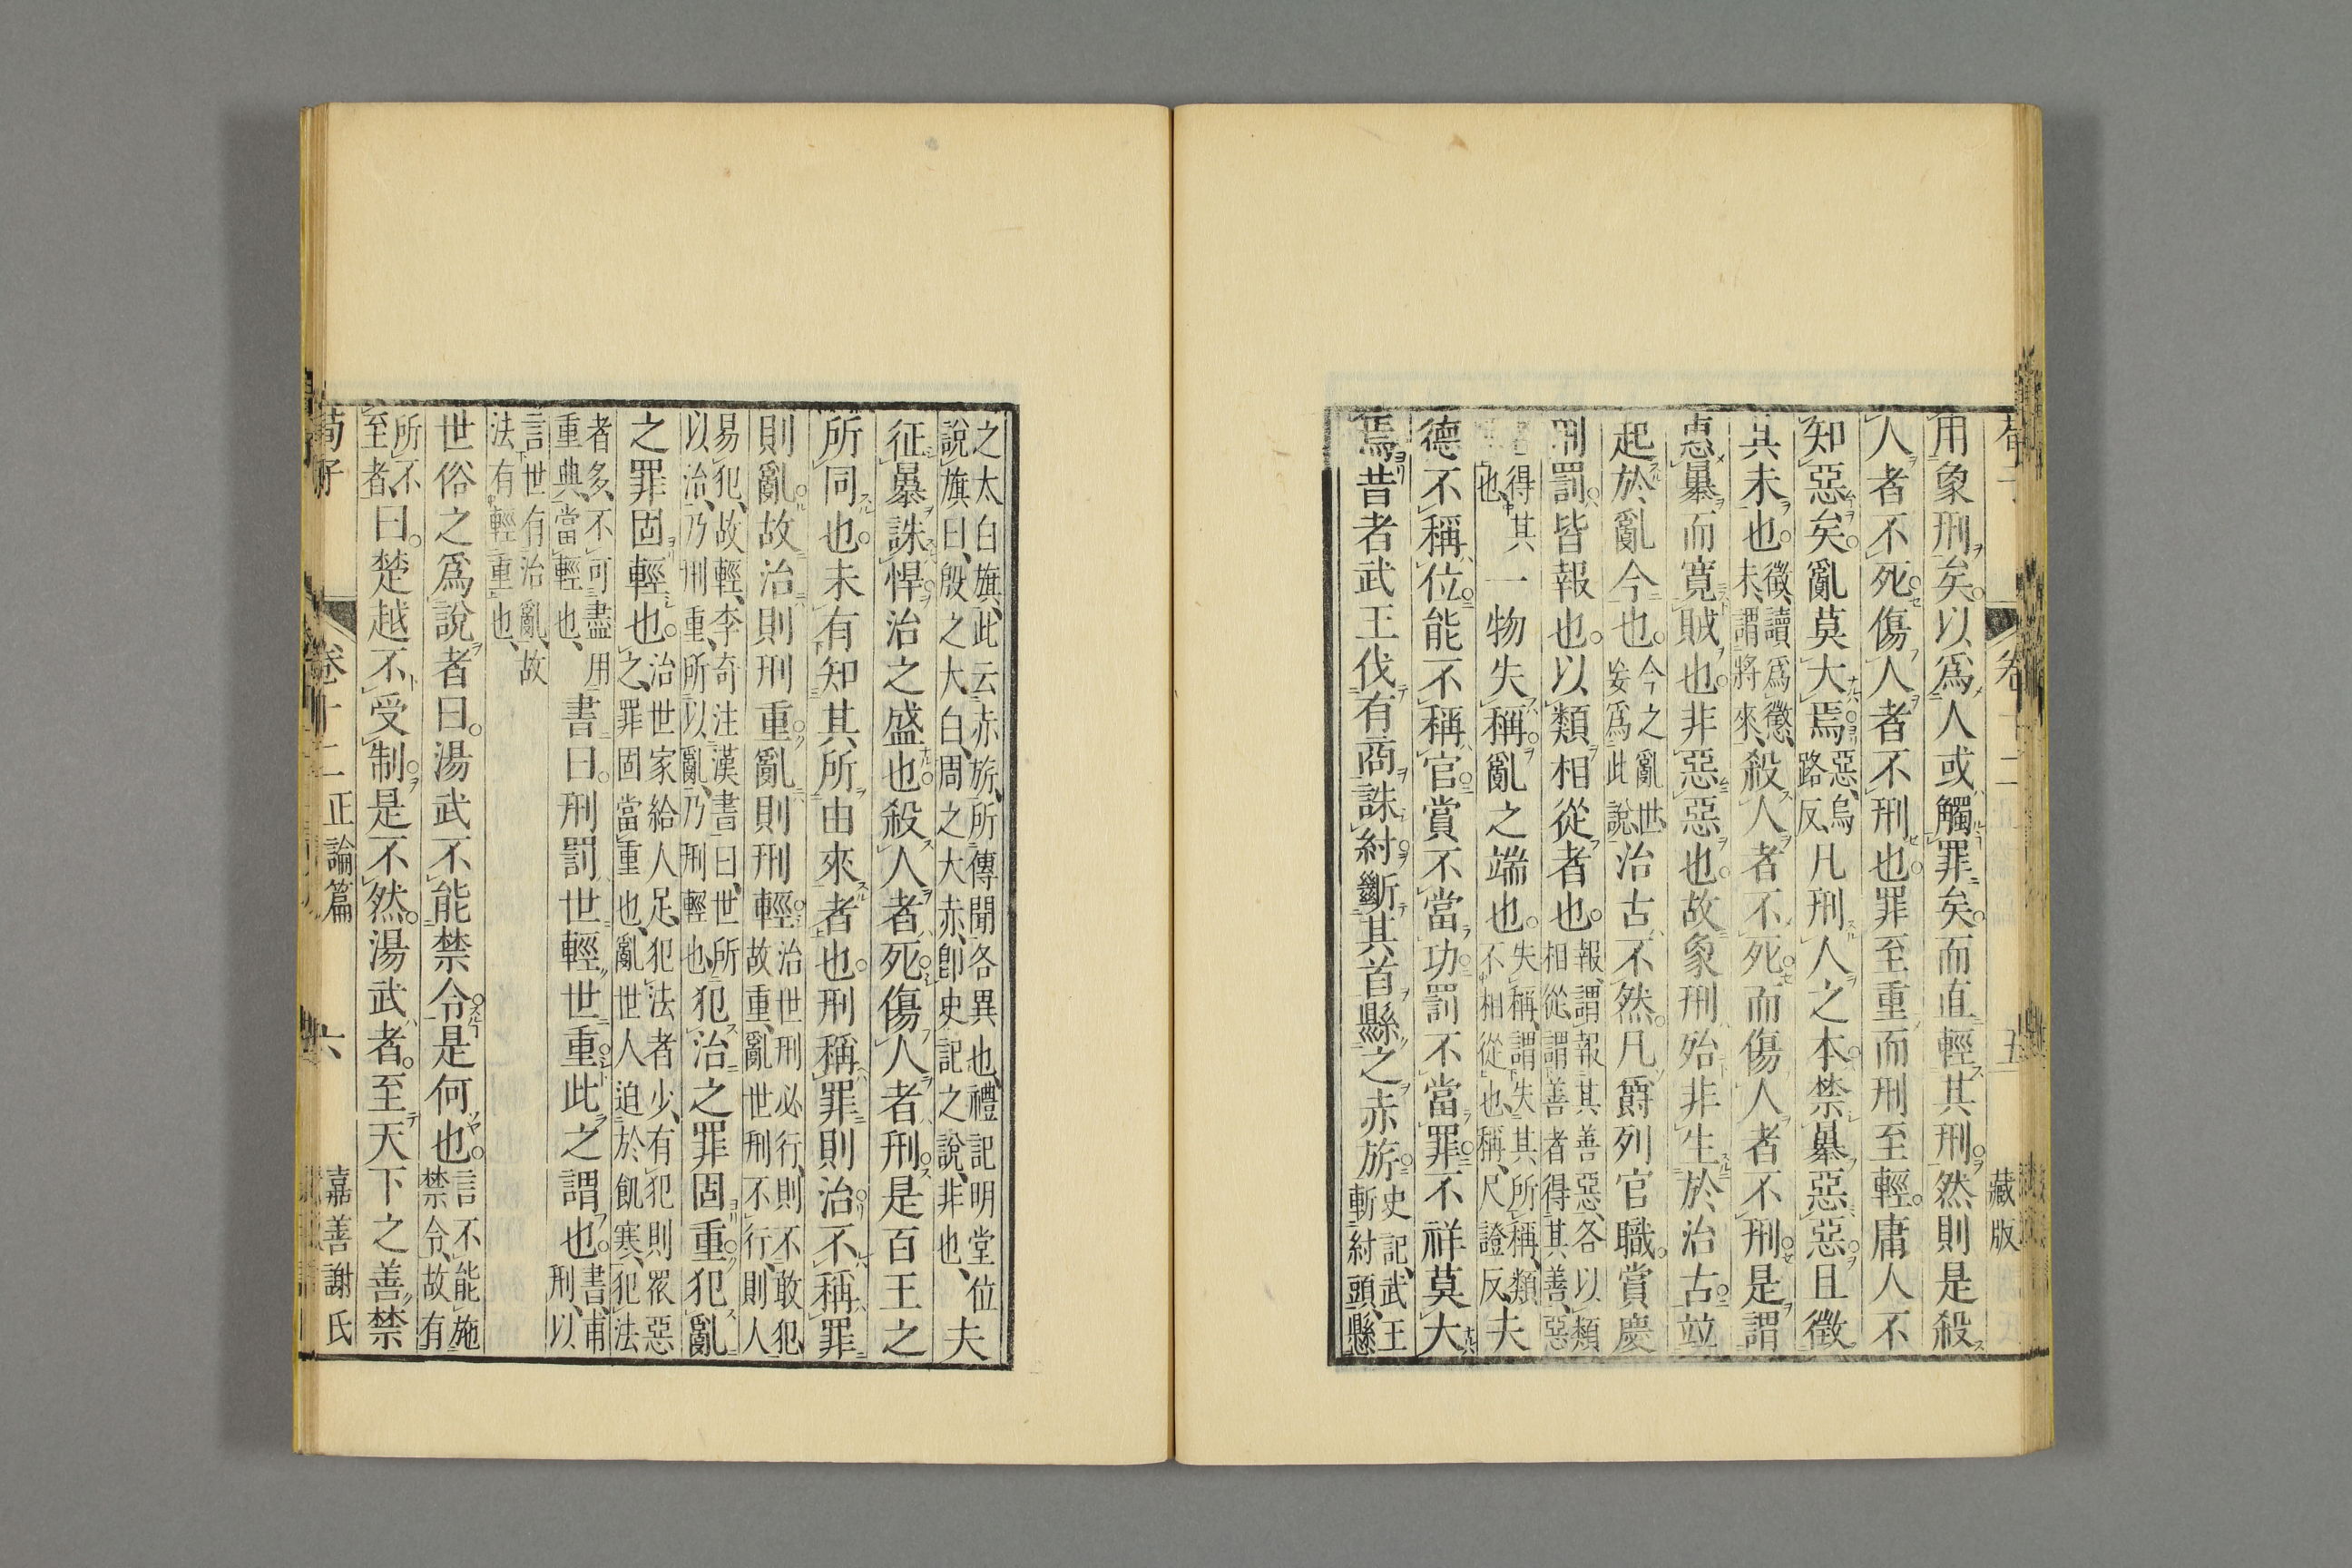 用象刑矣。以爲人或觸罪矣。而直輕其刑。然則是殺
人者不死。傷人者不刑也。罪至重而刑至輕。庸人不
知惡矣。亂莫大焉。惡、烏路反、凡刑人之本。禁暴惡惡。且徵
其未也。徵、讀爲懲、未、謂將來、殺人者不死。而傷人者不刑。是謂
惠暴而寬賊也。非惡惡也。故象刑殆非生於治古。竝
起於亂今也。今之亂世、妄爲此說、治古不然。凡爵列官職。賞慶
刑罰。皆報也。以類相從者也。報、謂報其善惡、各以類相從、謂善者得其善、惡
得其也、一物失稱。亂之端也。失稱、謂失其所稱、類不相從也、稱、尺證反、夫
德不稱位。能不稱官。賞不當功。罰不當罪。不祥莫大
焉。昔者武王伐有商。誅紂。斷其首。縣之赤旂。史記、武王斬紂頭、縣
藏版
之太白旗、此云赤旂、所傳聞各異也、禮記明堂位說旗曰、殷之大白、周之大赤、卽史記之說、非也、夫
征暴誅悍。治之盛也。殺人者死。傷人者刑。是百王之
所同也。未有知其所由來者也。刑稱罪則治。不稱罪
則亂。故治則刑重。亂則刑輕。治世刑必行、則不敢犯、故重、亂世刑不行、則人
易犯、故輕、李奇注漢書曰、世所以治、乃刑重、所以亂、乃刑輕也、犯治之罪固重。犯亂
之罪固輕也。治世家給人足、犯法者少、有犯則衆惡之、罪固當重也、亂世人迫於飢寒、犯法
者多、不可盡用重典、當輕也、書曰。刑罰世輕世重。此之謂也。書、甫刑、以
言世有治亂、故法有輕重也、
世俗之爲說者曰。湯武不能禁令。是何也。言不能施禁令、故有
所不至者、曰。楚越不受制。是不然。湯武者。至天下之善禁
荀子 卷十二 正論篇 六 嘉善謝氏